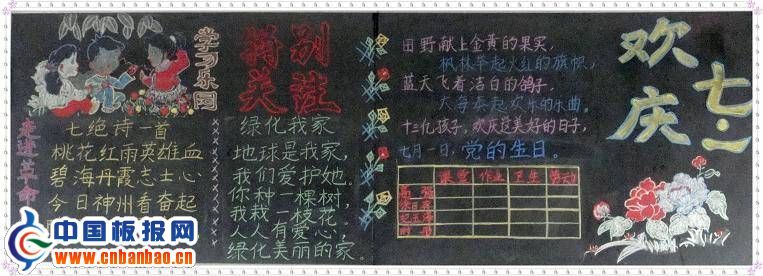 学习乐园
走进革命
七绝诗一首
桃花红雨英雄血
碧海丹霞志士心
今日神州看奋起
特别关注
绿化我家
地球是我家，
我们爱护她。
你种一棵树，
我栽一枝花。
人人有爱心，
绿化美丽的家。
田野献上金黄的果实，
枫林举起火红的旗帜，
蓝天飞着洁白的鸽子，
大海奏起欢乐的乐曲。
十三亿孩子，欢庆这美好的日子，
七月一日，党的生日。
课堂 作业 卫生 劳动
欢庆
七·一
中国板报网
www.cnbanbao.cn